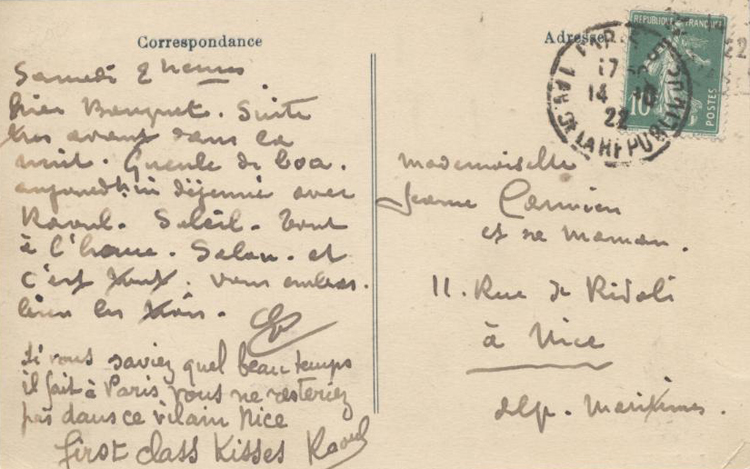 Correspondance
Samedi 2 heures
hier Banquet. Suite
très avant dans la
nuit. Gueule de boa.
aujourd'hui déjeuné avec
Raoul. Soleil. Tout
à l'heure. Salon. et
c'est tout. vous embras.
bien les trois.
si vous saviez quel beau temps
il fait à Paris vous ne resteriez
pas dans ce vilain Nice
first class Kisses Raoul
Adresse
PARIS
17
14 10
22
AV. DE LA REPUBLIQUE
REPUBLIQUE FRANÇAISE
10
POSTES
22
mademoiselle
Jeanne
et sa maman.
11. Rue de Rivoli
à Nice
Alp. Maritimes.